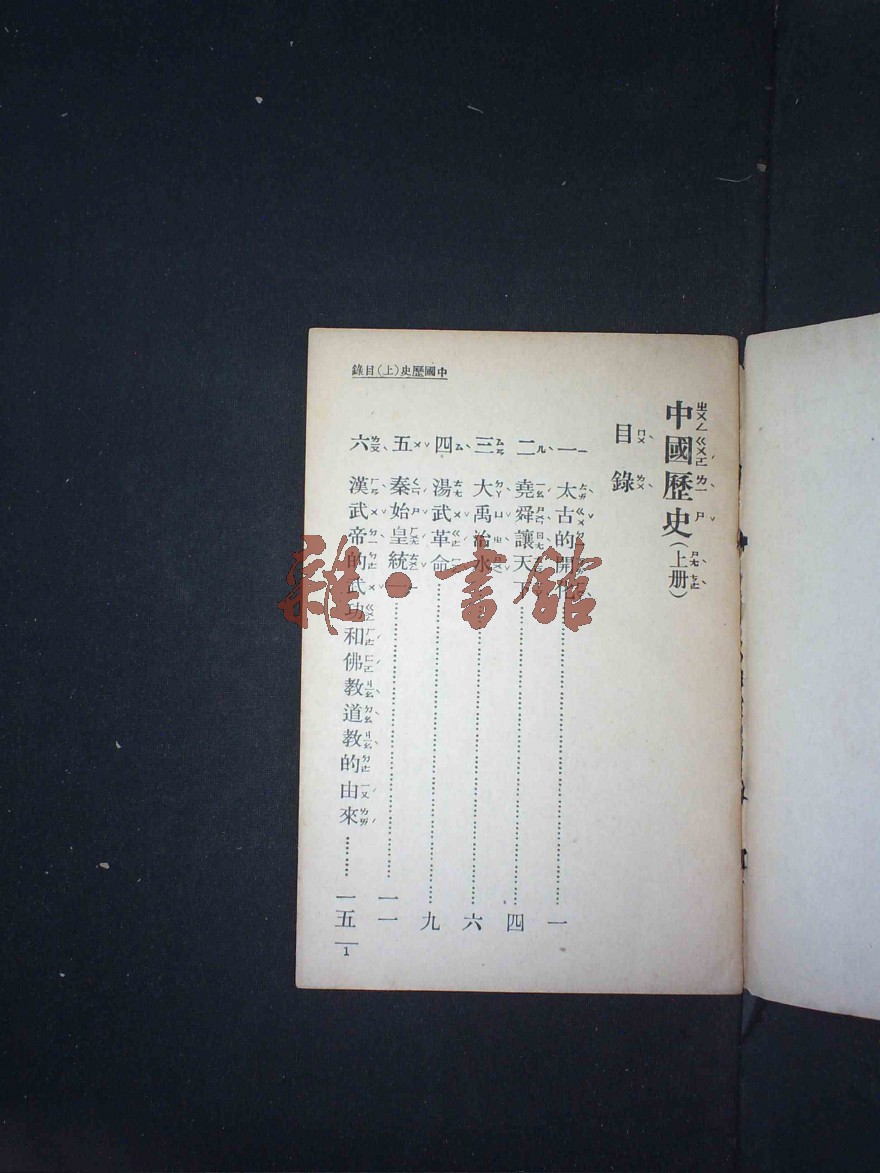 中國歷史(上)目錄
中國歷史(上册)
目錄
一 太古的開化………一
二 堯舜讓天下………四
三 大禹治水………六
四 湯武革命………九
五 秦始皇統一………一一
六 漢武帝的武功和佛教道教的由來………一五
1
雜·書館